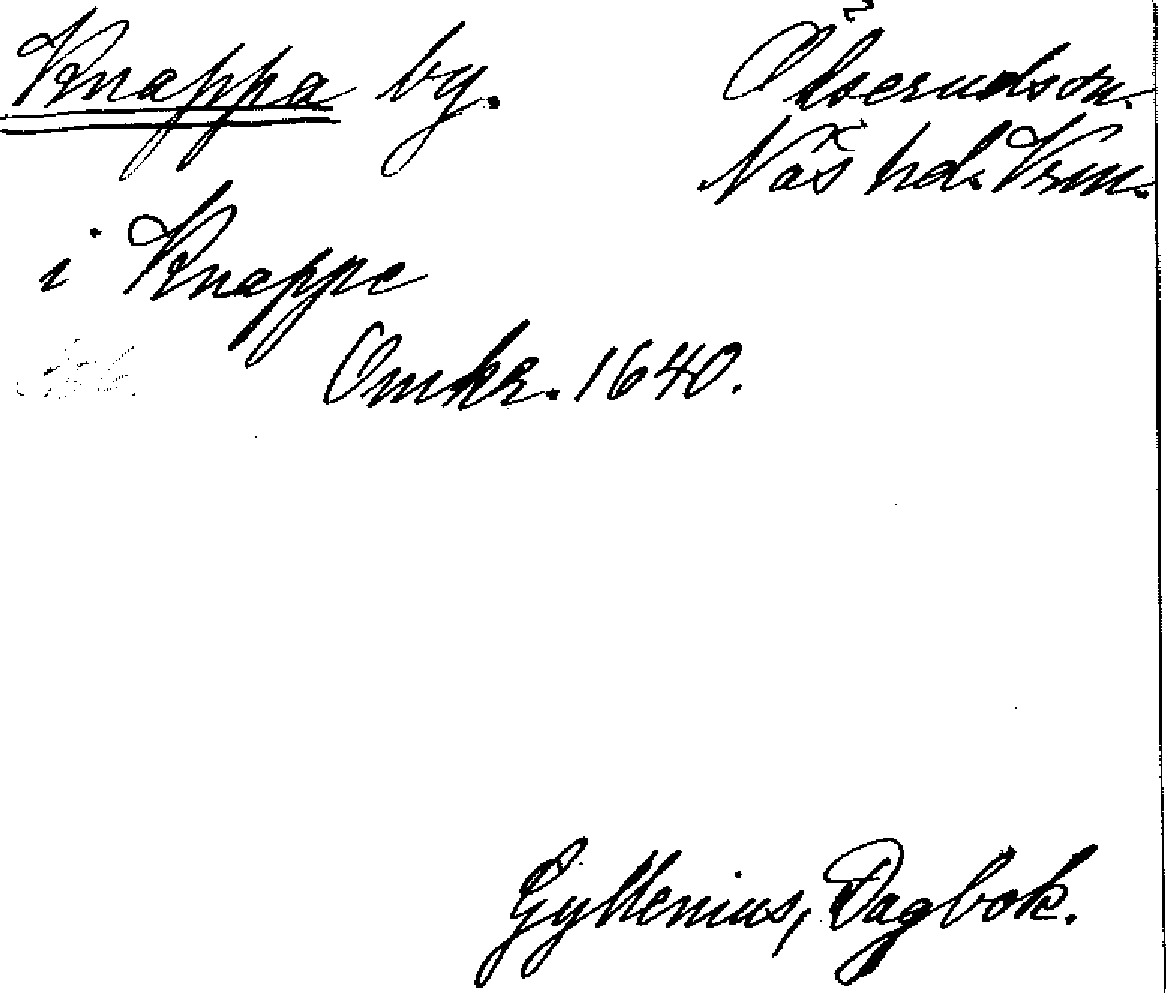 Knappa by. Ölseruds sn.
Näs hd. Vrm.
i Knappe
Omkr. 1640.
Gyllenius, Dagbok.